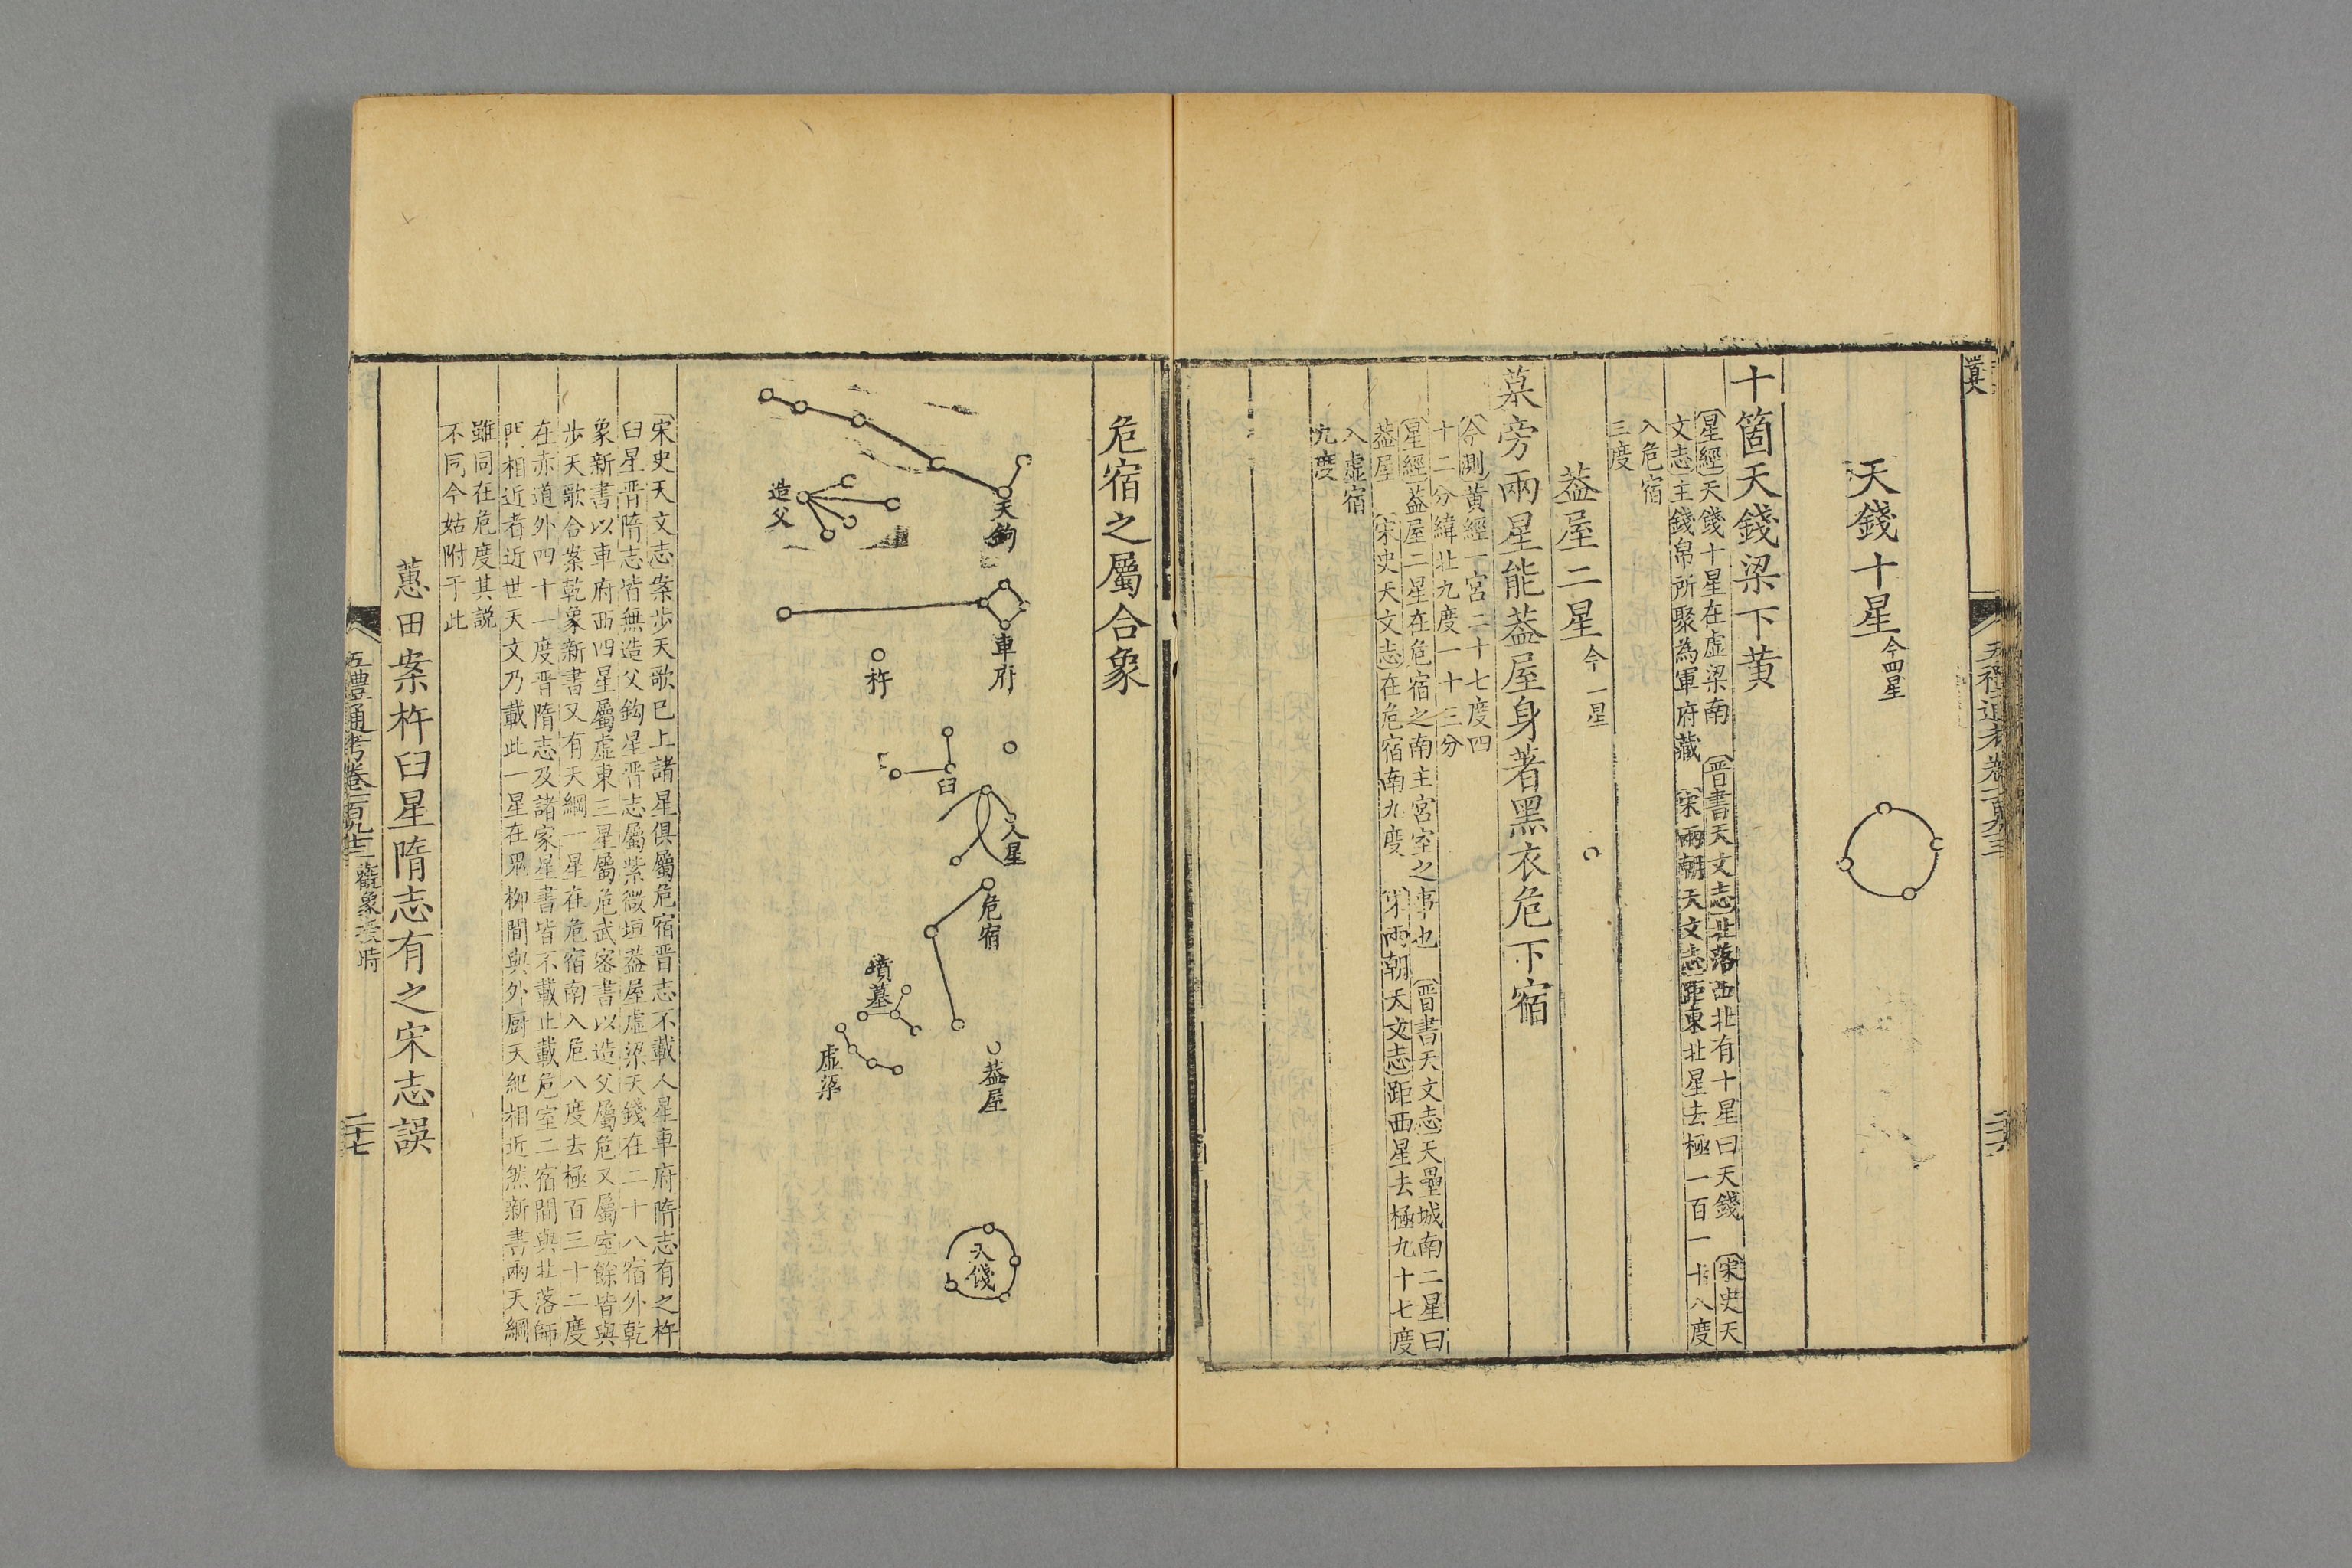 天錢十星今四星
十箇天錢梁下黄
星經天錢十星在虛梁南 晉書天文志北落西北有十星曰天錢 宋史天
文志主錢帛所聚為軍府藏 宋兩朝天文志距東北星去極一百一十八度
入危宿
三度
葢屋二星今一星
墓旁兩星能葢屋身著黑衣危下宿
今測黄經一宮二十七度四
十二分緯北九度一十三分
星經葢屋二星在危宿之南主宮室之事也 晉書天文志天壘城南二星曰
葢屋 宋史天文志在危宿南九度 宋兩朝天文志距西星去極九十七度
入虛宿
九度
危宿之屬合象
天鉤
造父
車府
杵
臼
人星
危宿
墳墓
虛梁
葢屋
天錢
宋史天文志案步天歌已上諸星俱屬危宿晉志不載人星車府隋志有之杵
臼星晉隋志皆無造父鉤星晉志屬紫微垣葢屋虛梁天錢在二十八宿外乾
象新書以車府西四星屬虛東三星屬危武密書以造父屬危又屬室餘皆與
步天歌合案乾象新書又有天綱一星在危宿南入危八度去極百三十二度
在赤道外四十一度晉隋志及諸家星書皆不載止載危室二宿間與北落師
門相近者近世天文乃載此一星在鬼柳間與外厨天紀相近然新書兩天綱
雖同在危度其説
不同今姑附于此
蕙田案杵臼星隋志有之宋志誤
五禮通考卷一百九十三 觀象授時
二十七